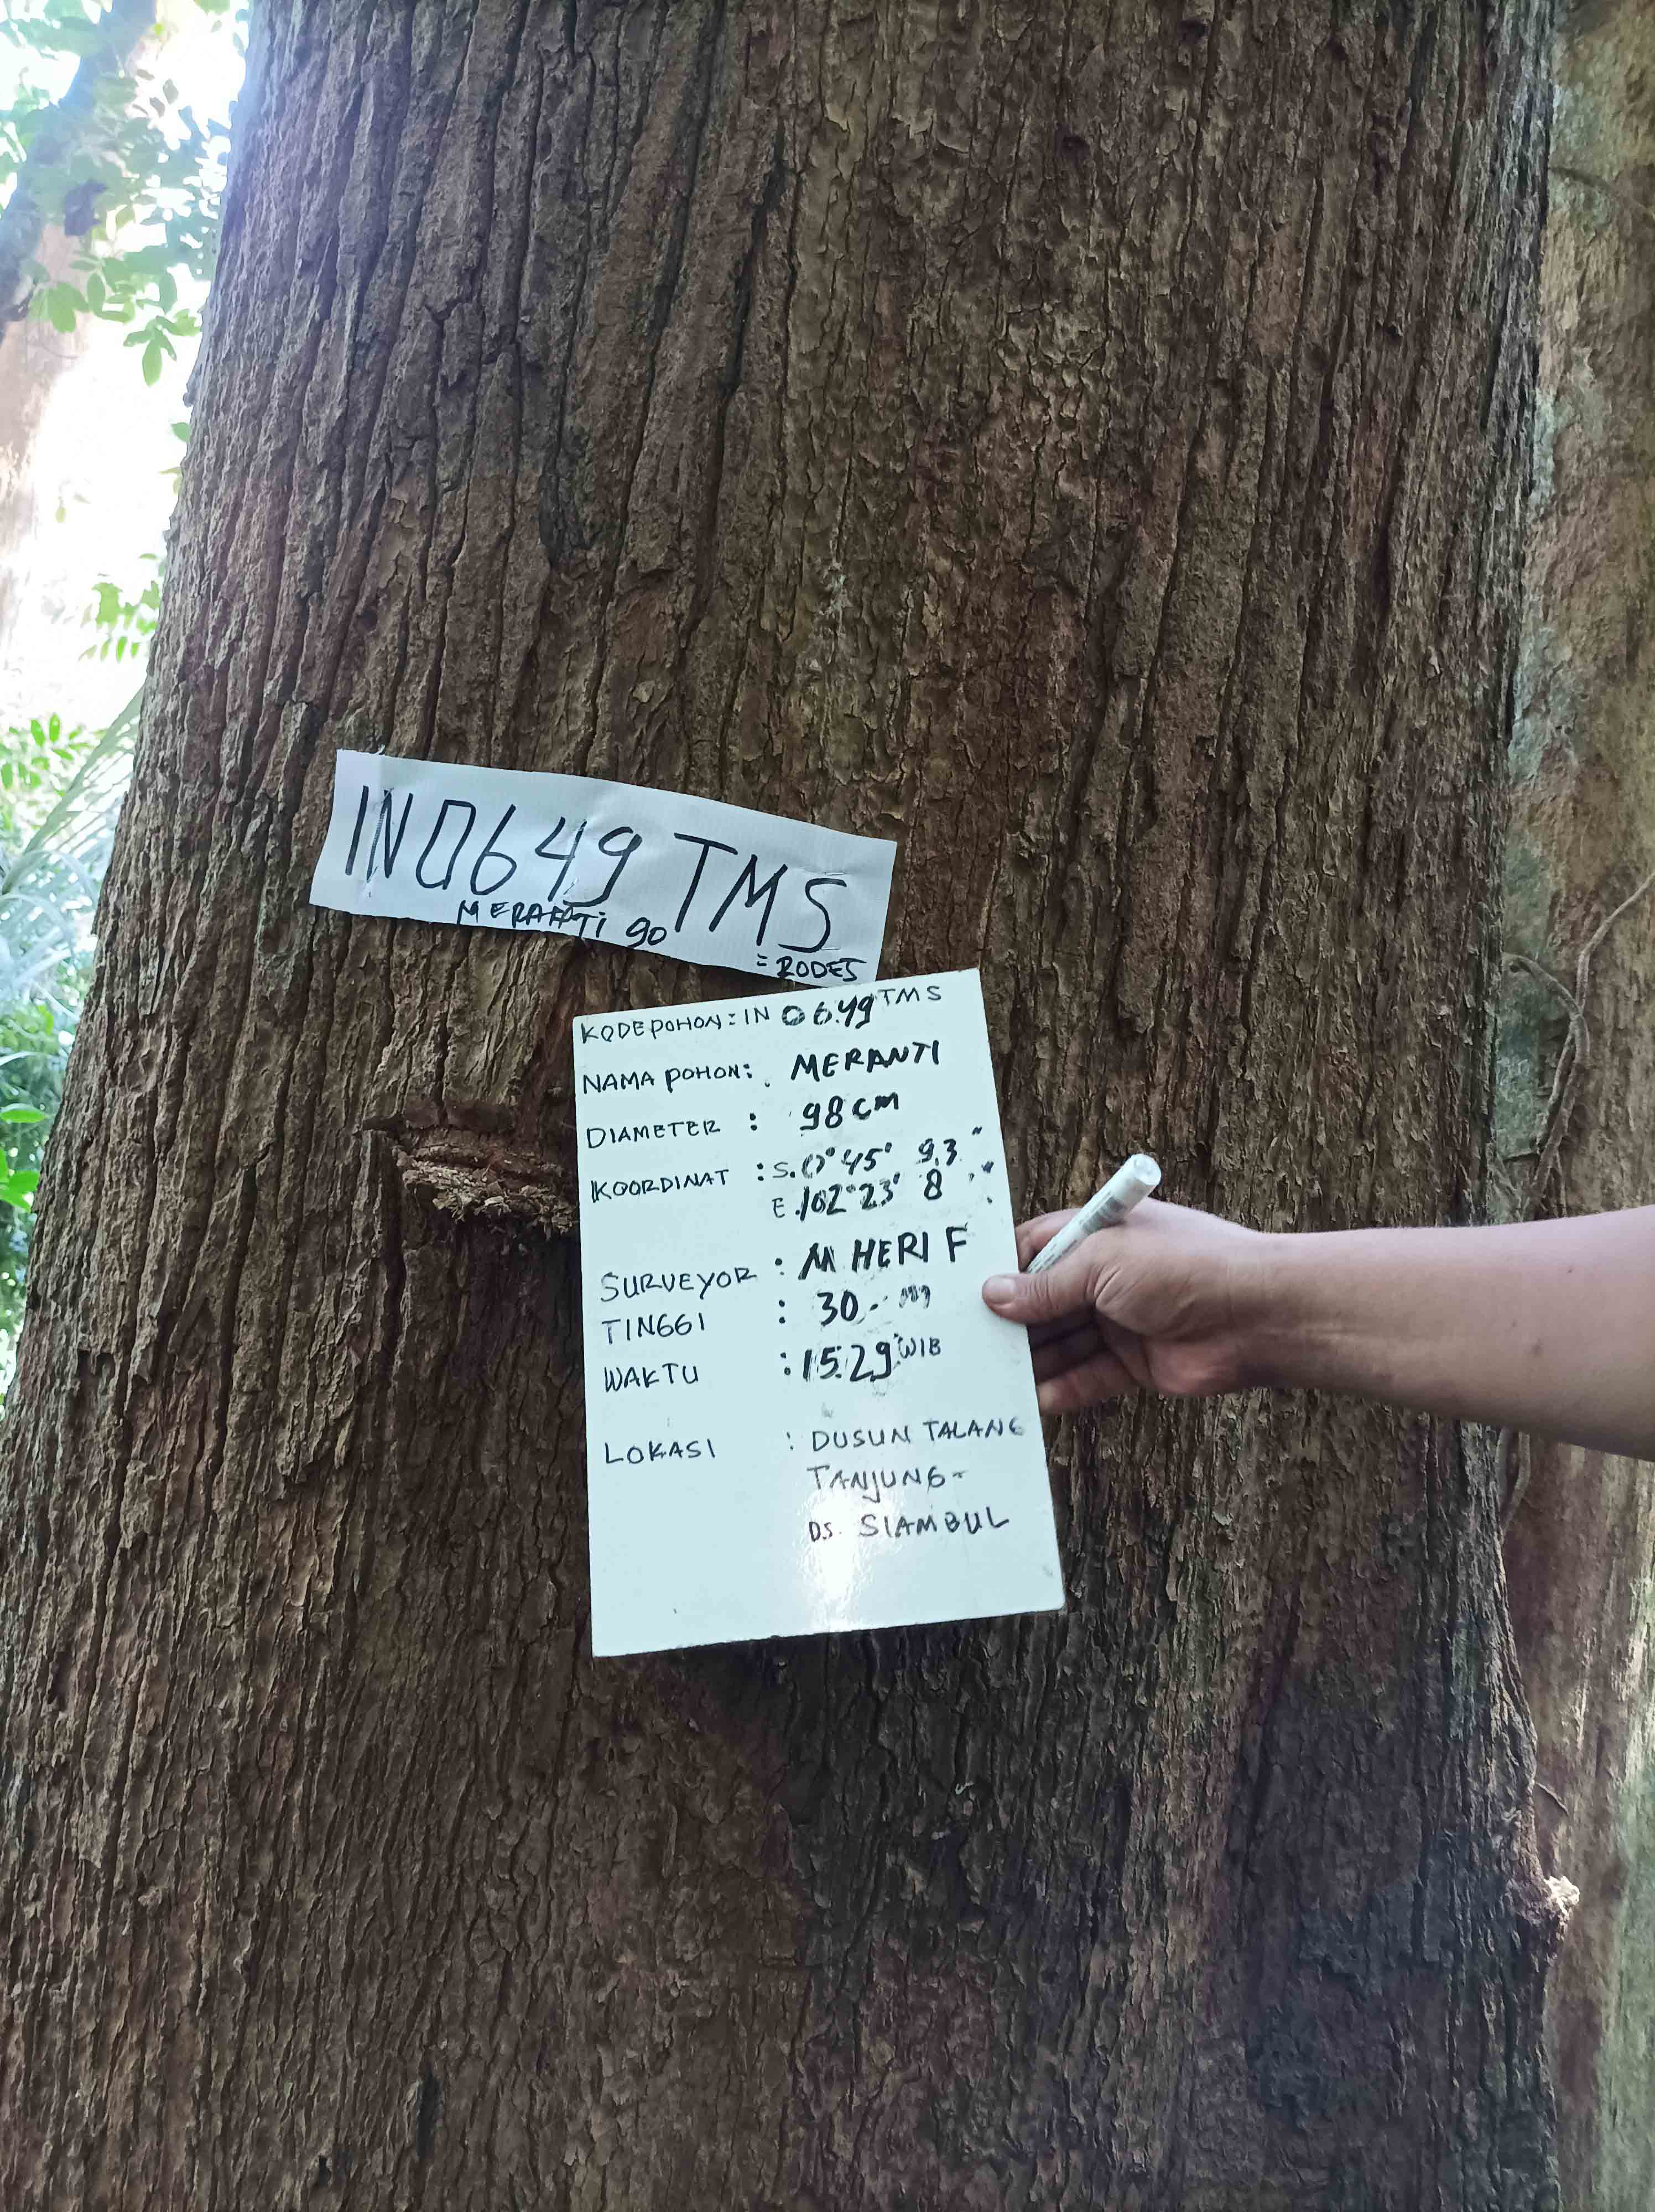 IN0649 TMS
MERANTI 90
= RODES
KODE POHON : IN 0649 TMS
NAMA POHON : MERANTI
DIAMETER : 98 cm
KOORDINAT : S. 0° 45' 9.3"
E. 102° 23' 8"
SURVEYOR : M HERI F
TINGGI : 30 - m
WAKTU : 15.29 WIB
LOKASI : DUSUN TALANG
TANJUNG -
DS. SIAMBUL